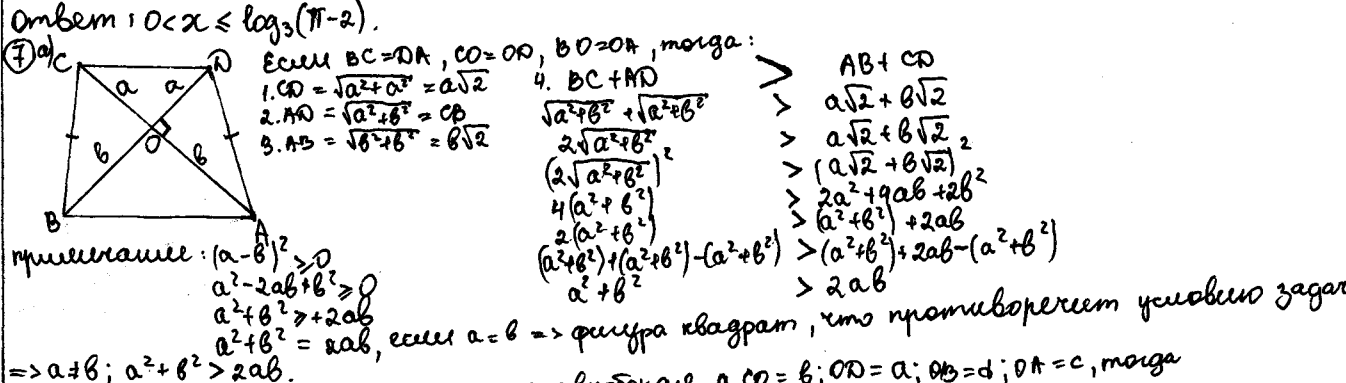 Ответ: 0<x≤log₃(π-2).
⑦ а) C D
a a
O
b b
B A
Если BC=DA, CO=OD, BO=OA, тогда:
1. CD = √(a²+a²) = a√2
2. AD = √(a²+b²) = CB
3. AB = √(b²+b²) = b√2
4. BC+AD > AB+CD
√(a²+b²) + √(a²+b²) > a√2+b√2
2√(a²+b²) > a√2+b√2
(2√(a²+b²))² > (a√2+b√2)²
4(a²+b²) > 2a²+4ab+2b²
2(a²+b²) > (a²+b²)+2ab
(a²+b²)+(a²+b²)-(a²+b²) > (a²+b²)+2ab-(a²+b²)
a²+b² > 2ab
примечание: (a-b)²≥0
a²-2ab+b²≥0
a²+b²≥+2ab
a²+b² = 2ab, если a=b => фигура квадрат, что противоречит условию задач
=> a≠b; a²+b²>2ab.
a, CO=b; OD=a; OB=d; OA=c, тогда